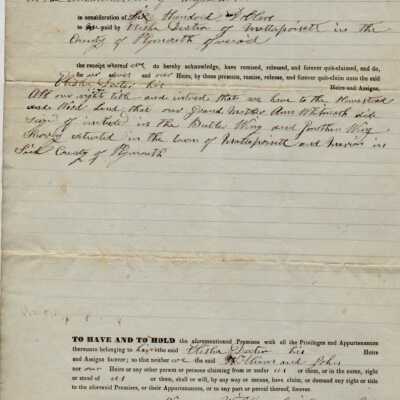 in consideration of Six Hundred Dollars
to us paid by Elisha Dexter of Mattapoisett in the
County of Plymouth aforesaid
the receipt whereof we do hereby acknowledge, have remised, released, and forever quit-claimed, and do,
for our selves and our Heirs, by these presents, remise, release, and forever quit-claim unto the said
Elisha Dexter his Heirs and Assigns,
All our right title and interest that we have to the Homestead
and Wood Land, that our Grand Mother Ann Whitworth did
in the Butler Wing and Jonathan Wing
situated in the town of Mattapoisett and Marion in
Said County of Plymouth
TO HAVE AND TO HOLD the aforementioned Premises with all the Privileges and Appurtenances
thereunto belonging to him the said Elisha Dexter his Heirs
and Assigns forever; so that neither we the said and John
nor our Heirs or any other person or persons claiming from or under us or them, or in the name, right
or stead of us or them, shall or will, by any way or means, have, claim, or demand any right or title
to the aforesaid Premises, or their Appurtenances, or to any part or parcel thereof, forever.